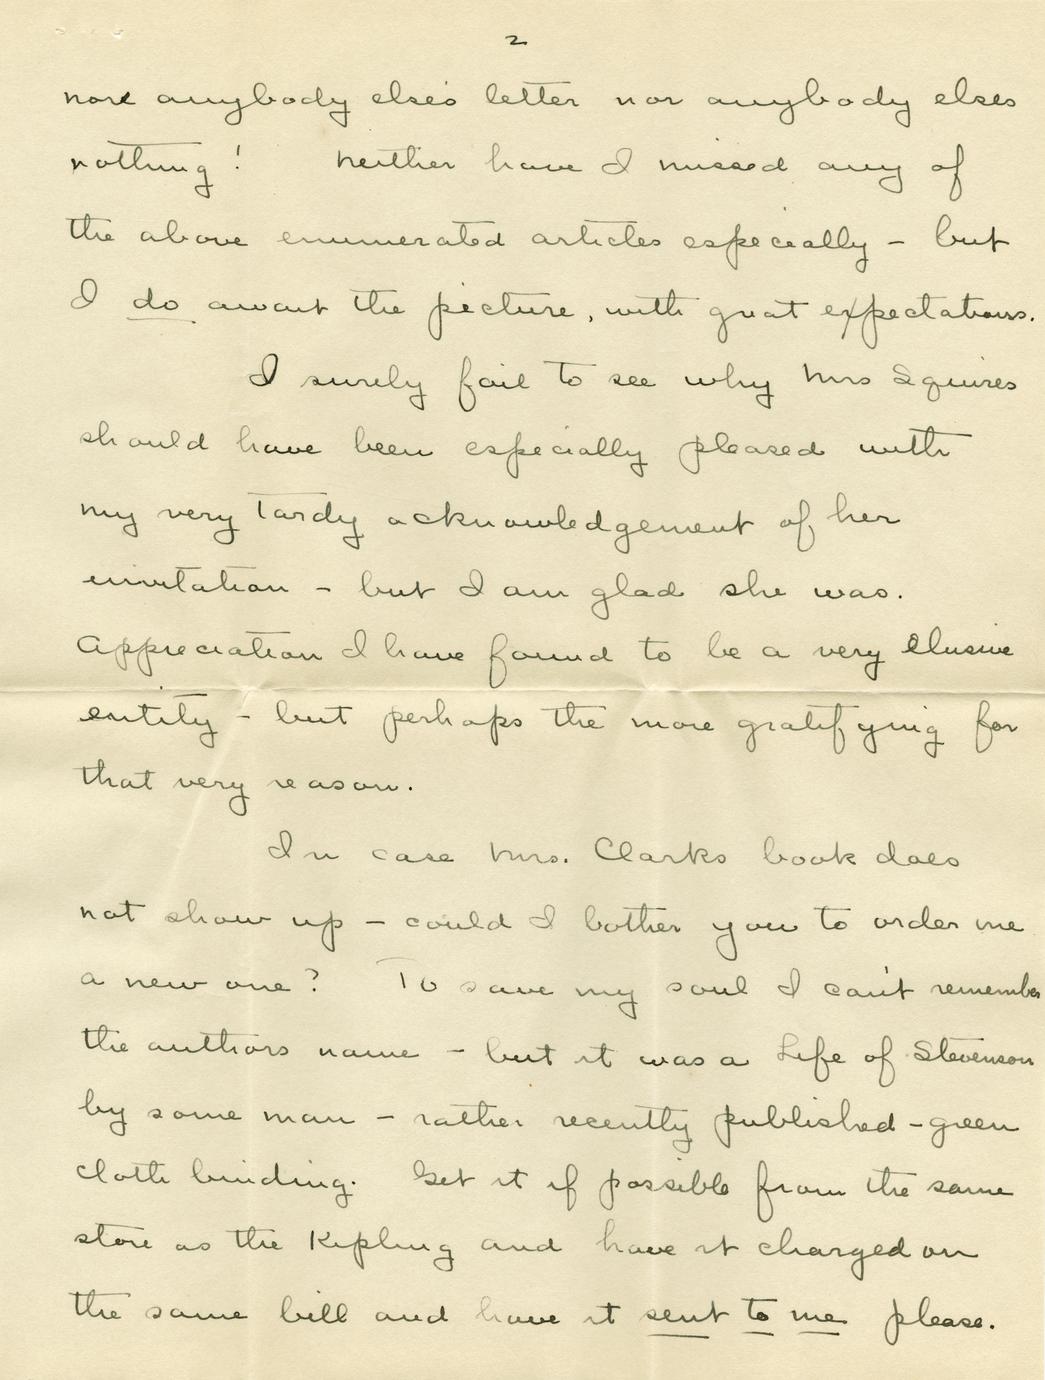 2
nore anybody elses letter nor anybody elses
nothing! Neither have I missed any of
the above enumerated articles especially – but
I do await the picture, with great expectations.
I surely fail to see why Mrs Squires
should have been especially pleased with
my very tardy acknowledgement of her
invitation – but I am glad she was.
Appreciation I have found to be a very elusive
entity – but perhaps the more gratifying for
that very reason.
In case Mrs. Clarks book does
not show up – could I bother you to order me
a new one? To save my soul I can't remember
the authors name – but it was a Life of Stevenson
by some man – rather recently published – green
cloth binding. Get it if possible from the same
store as the Kipling and have it charged on
the same bill and have it sent to me please.